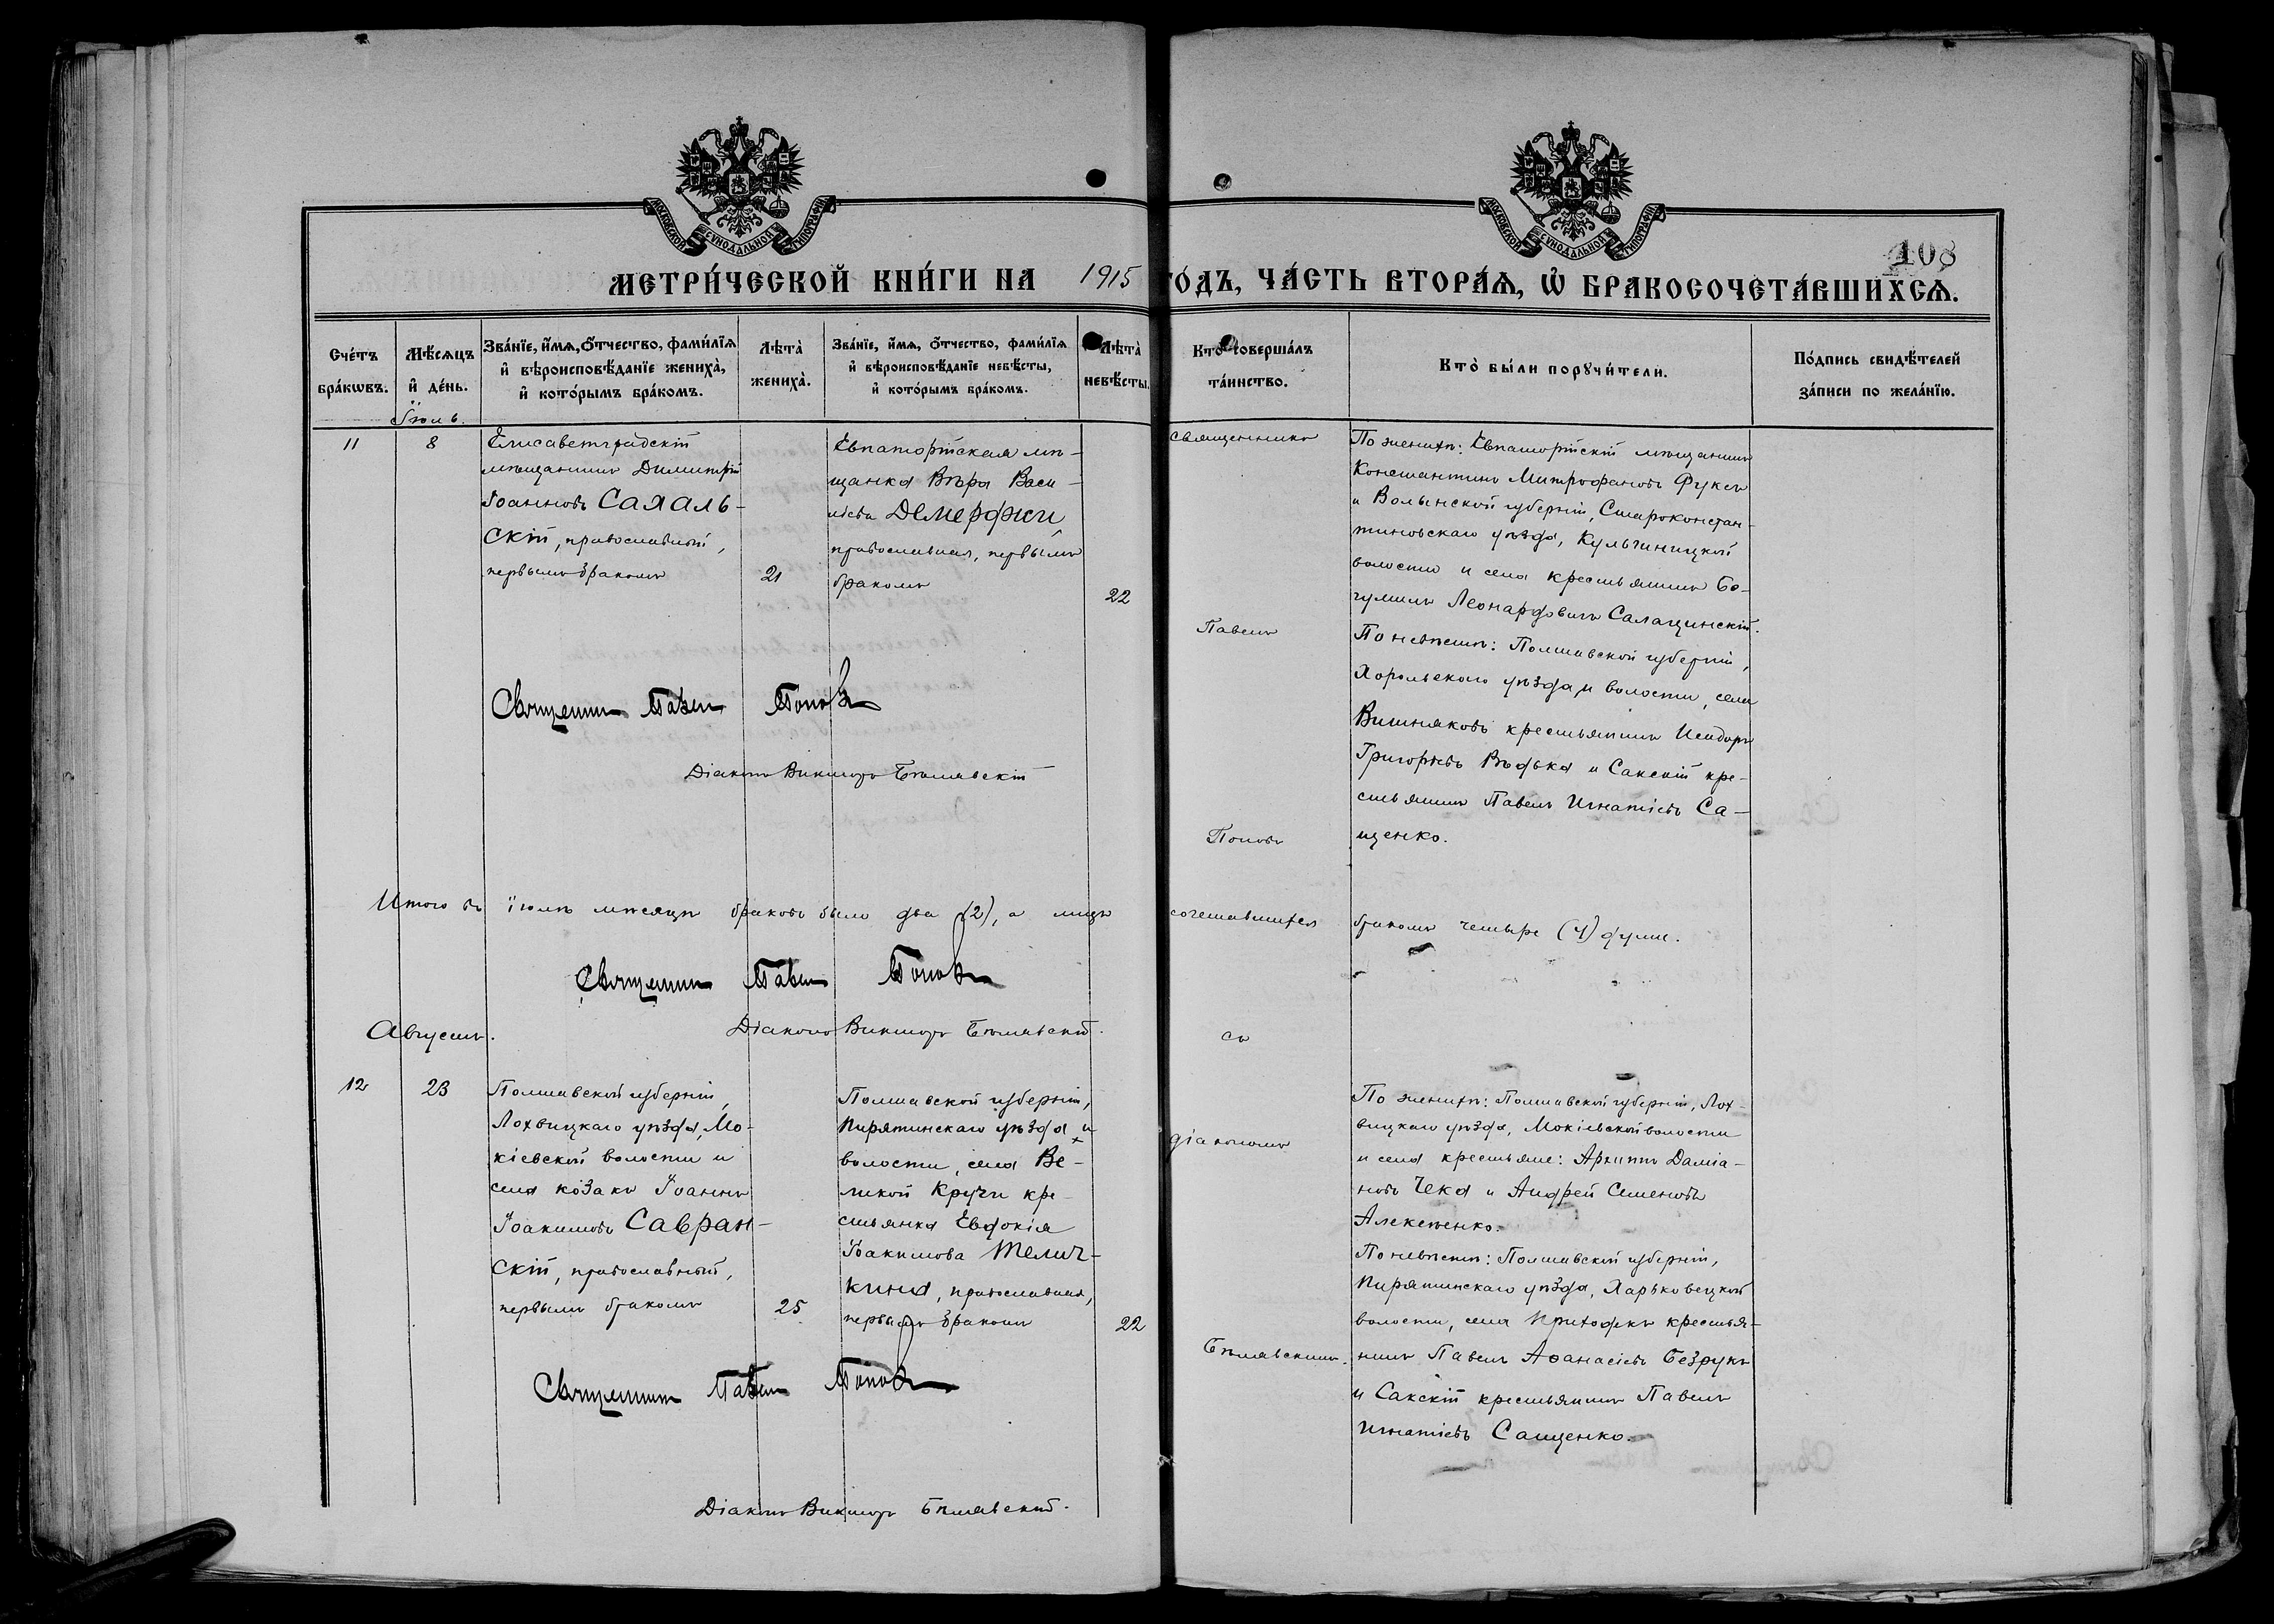 МОСКОВСКОЙ СѴНОДАЛЬНОЙ ТИПОГРАФІИ
МОСКОВСКОЙ СѴНОДАЛЬНОЙ ТИПОГРАФІИ
108
МЕТРИ́ЧЕСКОЙ КНИ́ГИ НА 1915 ГО́ДЪ, ЧА́СТЬ ВТОРА́Ѧ, Ѡ҆ БРАКОСОЧЕТА́ВШИХСѦ.
Сче́тъ бра́кѡвъ.
Мѣ́сѧцъ и҆ де́нь.
Зва́нїе, и҆́мѧ, о҆́тчество, фами́лїѧ и҆ вѣроисповѣ́данїе жениха̀, и҆ кото́рымъ бра́комъ.
Лѣта̀ жениха̀.
Зва́нїе, и҆́мѧ, о҆́тчество, фами́лїѧ и҆ вѣроисповѣ́данїе невѣ́сты, и҆ кото́рымъ бра́комъ.
Лѣта̀ невѣ́сты.
Кто̀ соверша́лъ та́инство.
Кто̀ бы́ли порꙋчи́тели.
По́дпись свидѣ́телей за́писи по жела́нїю.
Іюль.
11
8
Елисаветградскій
мѣщанинъ Димитрій
Іоанновъ Сахаль-
скій, православный,
первымъ бракомъ
21
Евпаторійская мѣ-
щанка Вѣра Васи-
ліева Демерджи
православная, первымъ
бракомъ
22
Священникъ
Павелъ
Поповъ
По женихѣ: Евпаторійскій мѣщанинъ
Константинъ Митрофановъ Фуксъ
и Волынской губерніи, Староконстан-
тиновскаго уѣзда, Кульчиницкой
волости и села крестьянинъ Бо-
гумилъ Леонардовичъ Салащинскій.
По невѣстѣ: Полтавской губерніи,
Хорольскаго уѣзда и волости, села
Вишняковъ крестьянинъ Исидоръ
Григорьевъ Вѣдька и Сакскій кре-
стьянинъ Павелъ Игнатіевъ Са-
щенко.
Священникъ Павелъ Поповъ
Діаконъ Викторъ Бѣлявскій
Итого въ іюлѣ мѣсяцѣ браковъ было два (2), а лицъ сочетавшихся бракомъ четыре (4) душъ.
Священникъ Павелъ Поповъ
Діаконъ Викторъ Бѣлявскій.
Августъ.
12
23
Полтавской губерніи,
Лохвицкаго уѣзда, Мо-
кіевской волости и
села козакъ Іоаннъ
Іоакимовъ Савран-
скій, православный,
первымъ бракомъ
25
Полтавской губерніи,
Пирятинскаго уѣзда и
волости, села Ве-
ликой Кручи кре-
стьянка Евдокія
Іоакимова Телич-
кина, православная,
первымъ бракомъ
22
съ
діакономъ
Бѣлявскимъ.
По женихѣ: Полтавской губерніи, Лох-
вицкаго уѣзда, Мокіевской волости
и села крестьяне: Архиппъ Даміа-
новъ Чека и Андрей Семеновъ
Алексеенко.
По невѣстѣ: Полтавской губерніи,
Пирятинскаго уѣзда, Харьковецкой
волости, села Приходекъ крестья-
нинъ Павелъ Аѳанасіевъ Безрукъ
и Сакскій крестьянинъ Павелъ
Игнатіевъ Сащенко.
Священникъ Павелъ Поповъ
Діаконъ Викторъ Бѣлявскій.